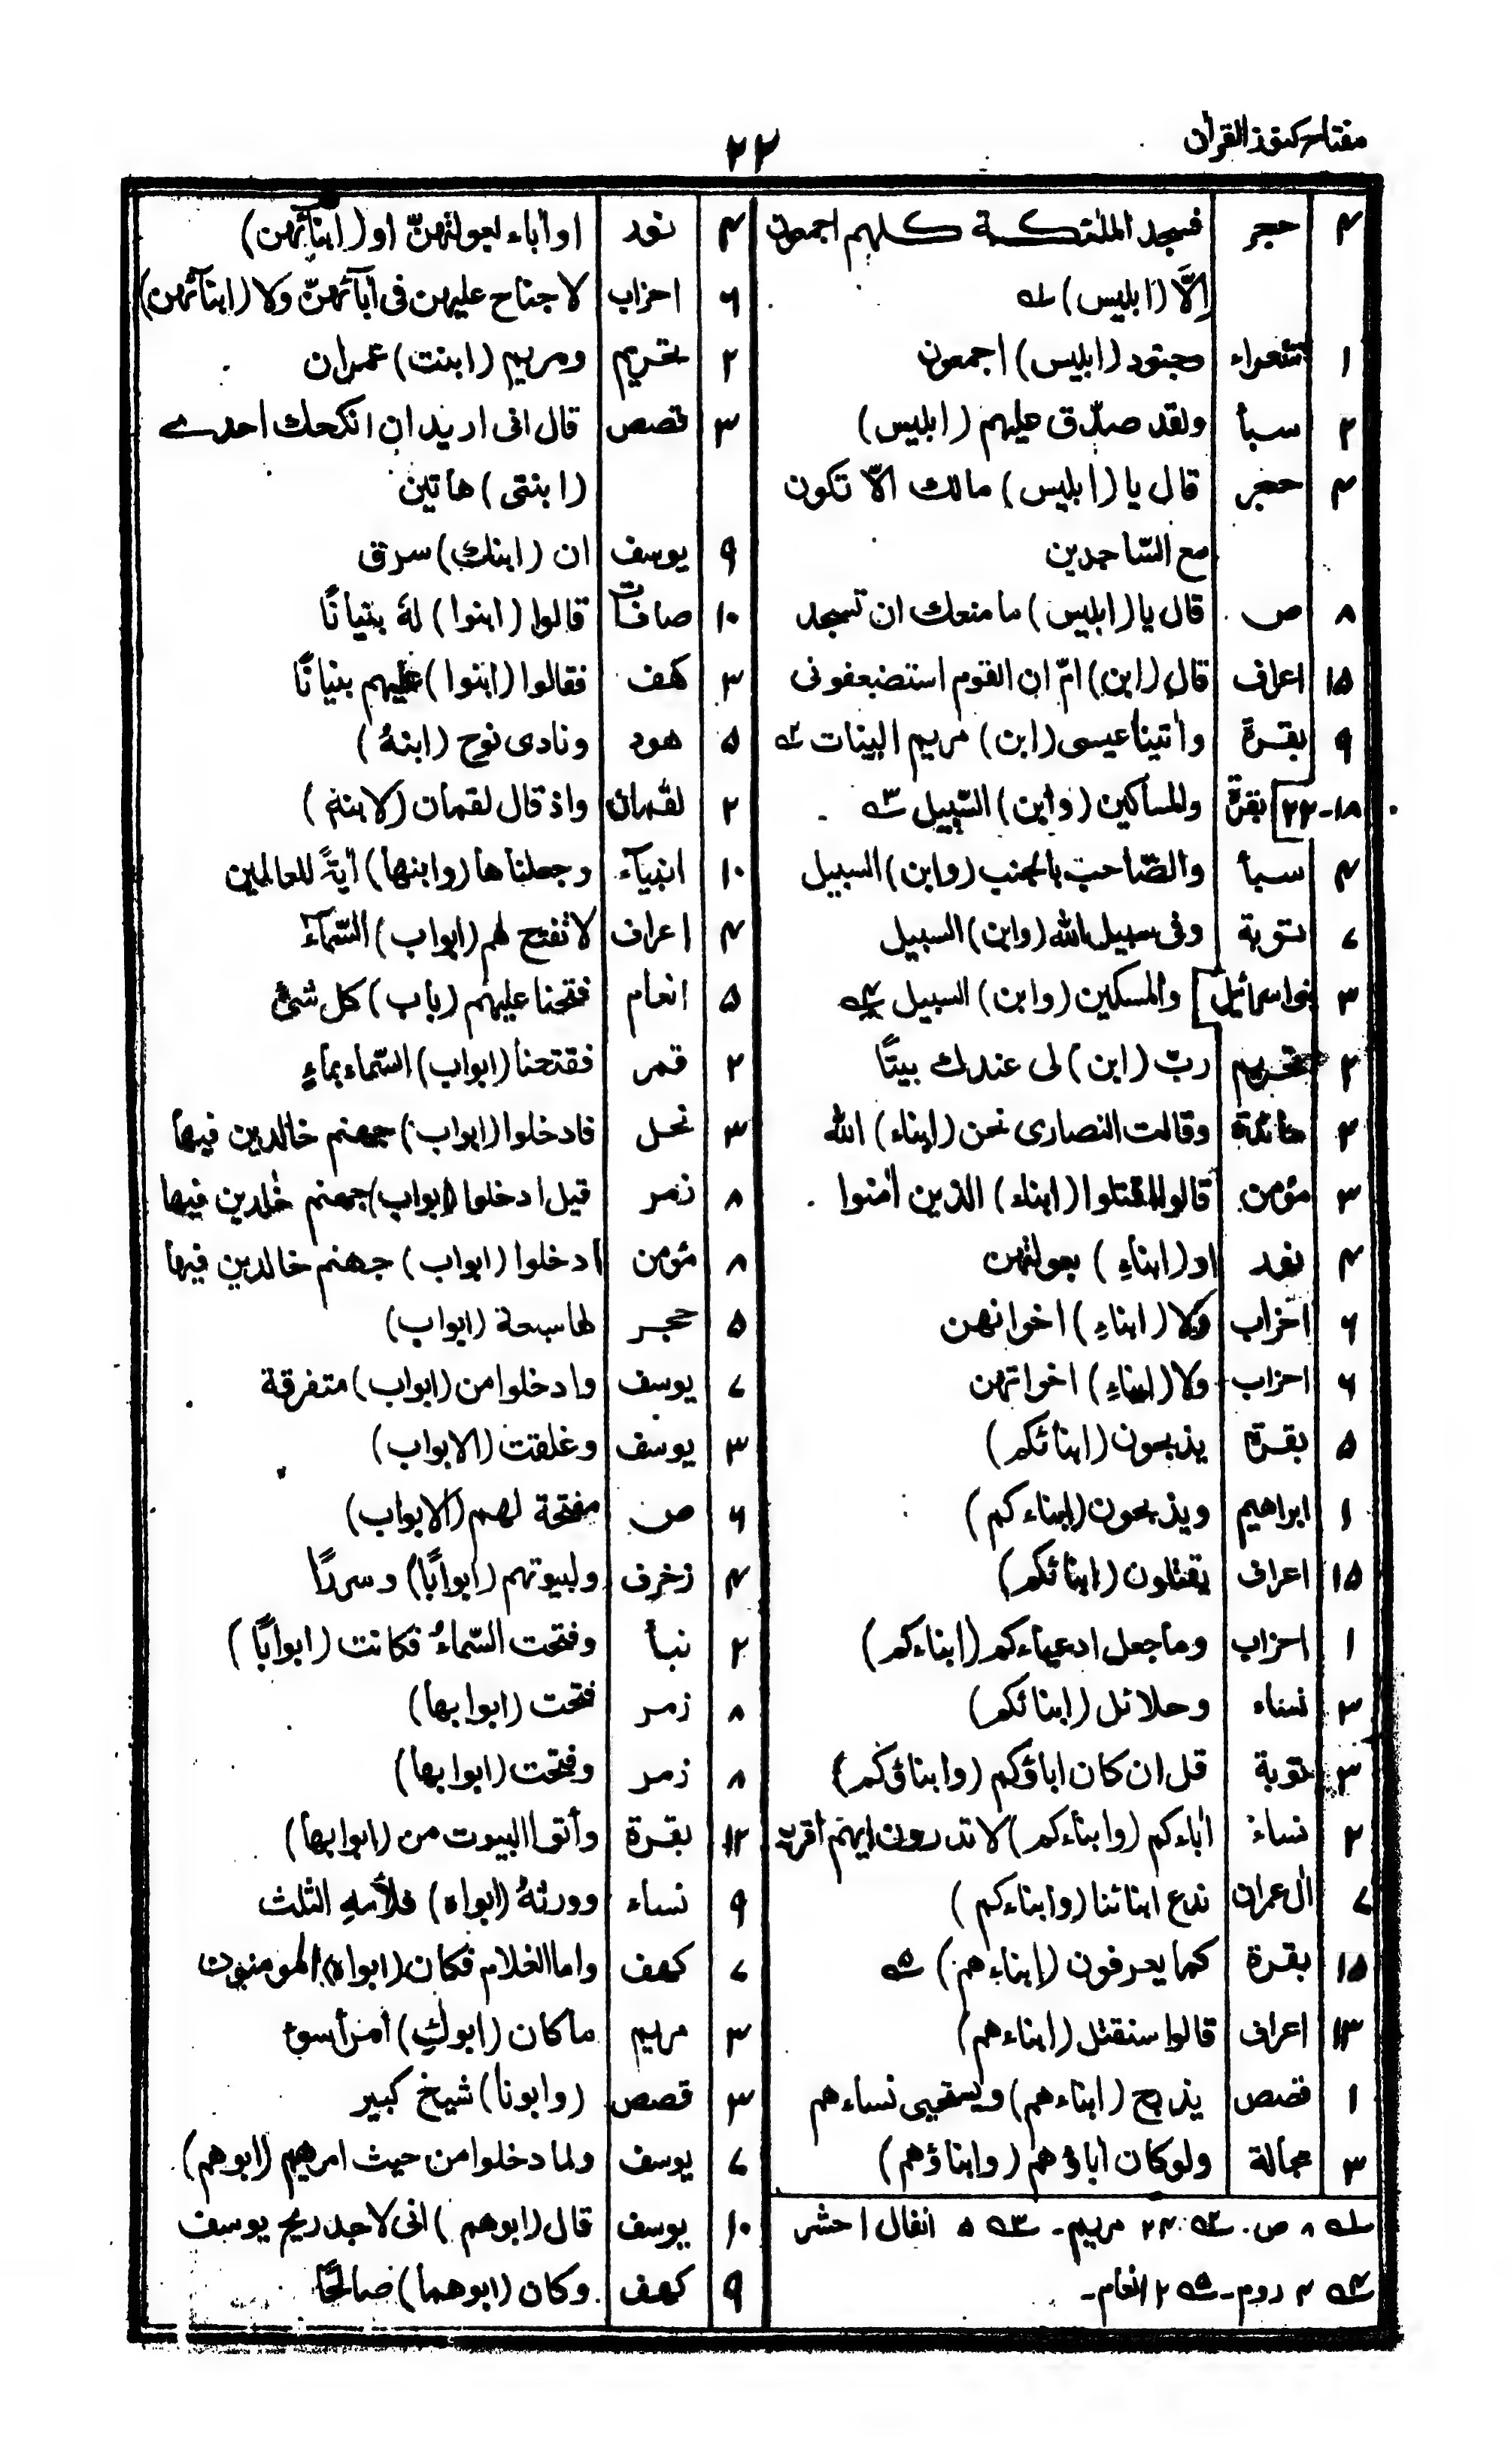 مفتاح كنوز القرأن
۲۲
۴ حجر فسجد الملٰئكة كلهم اجمعون
اِلَّا (ابليس) ؎۱
۱ شعراء وجنود (ابليس) اجمعون
۲ سبأ ولقد صدّق عليهم (ابليس)
۴ حجر قال يا (ابليس) مالك الّا تكون
مع السّاجدين
۸ ص قال يا (ابليس) ما منعك ان تسجد
۱۵ اعراف قال (ابن) امّ ان القوم استضعفونى
۹ بقرة واٰتينا عيسى (ابن) مريم البينات ؎۲
۱۸-۲۲ بقرة والمساكين (وابن) السّبيل ؎۳
۴ سبأ والصّاحب بالجنب (وابن) السبيل
۷ توبة وفى سبيل الله (وابن) السبيل
۳ بنى اسرائيل والمسكين (وابن) السبيل ؎۴
۲ تحريم ربّ (ابن) لى عندك بيتًا
۳ مائدة وقالت النصارى نحن (ابناء) الله
۳ مؤمن قالوا اقتلوا (ابناء) الذين اٰمنوا
۴ نور او (ابناءِ) بعولتهن
۶ احزاب ولا (ابناءِ) اخوانهن
۶ احزاب ولا (ابناءِ) اخواتهن
۵ بقرة يذبحون (ابنائكم)
۱ ابراهيم ويذبحون (ابناءكم)
۱۵ اعراف يقتلون (ابنائكم)
۱ احزاب وماجعل ادعياءكم (ابناءكم)
۳ نساء وحلائل (ابنائكم)
۳ توبة قل ان كان اباؤكم (وابناؤكم)
۲ نساء اٰباءكم (وابناءكم) لا تدرون ايهم اقرب
۷ اٰل عمران ندع ابنائنا (وابناءكم)
۱۵ بقرة كما يعرفون (ابناءهم) ؎۵
۱۳ اعراف قالوا سنقتل (ابناءهم)
۱ قصص يذبح (ابناءهم) ويستحيى نساءهم
۳ مجالة ولوكان اٰباؤهم (وابناؤهم)
؎۱ ۸ ص. ؎۲ ۲۴ مريم۔ ؎۳ ۵ انفال ۱ حشر
؎۴ ۴ روم۔ ؎۵ ۲ انعام۔
۴ نور او اٰباء لبعولتهنّ او (ابنائهن)
۶ احزاب لا جناح عليهن فى اٰبآئهنّ ولا (ابنآئهن)
۲ تحريم ومريم (ابنت) عمران
۳ قصص قال انى اريد ان انكحك احدے
(ابنتى) هاتين
۹ يوسف ان (ابنك) سرق
۱۰ صافّات قالوا (ابنوا) لهٗ بنيانًا
۳ كهف فقالوا (ابنوا) عليهم بنيانًا
۵ هود ونادى نوح (ابنهٗ)
۲ لقمان واذ قال لقمان (لابنهٖ)
۱۰ انبيآء وجعلناها (وابنها) اٰيةً للعالمين
۴ اعراف لا تفتح لهم (ابواب) السّمآء
۵ انعام فتحنا عليهم (باب) كل شئ
۲ قمر ففتحنا (ابواب) السّماء بماءٍ
۳ نحل فادخلوا (ابواب) جهنم خالدين فيها
۸ زمر قيل ادخلوا (ابواب) جهنم خٰلدين فيها
۸ مؤمن ادخلوا (ابواب) جهنم خالدين فيها
۵ حجر لها سبعة (ابواب)
۷ يوسف وادخلوا من (ابواب) متفرقة
۳ يوسف وغلقت (الابواب)
۶ ص مفتحة لهم (الابواب)
۴ زخرف ولبيوتهم (ابوابًا) وسررًا
۲ نبأ وفتحت السّماءُ فكانت (ابوابًا)
۸ زمر فتحت (ابوابها)
۸ زمر وفتحت (ابوابها)
۱۲ بقرة وأتوا البيوت من (ابوابها)
۹ نساء وورثهٗ (ابواه) فلأمهِ الثلث
۷ كهف واما الغلام فكان (ابواه) المومنون
۳ مريم ماكان (ابوكِ) امرأسوء
۳ قصص (وابونا) شيخ كبير
۷ يوسف ولما دخلوا من حيث امرهم (ابوهم)
۱۰ يوسف قال (ابوهم) انى لاجد ريح يوسف
۹ كهف وكان (ابوهما) صالحًا